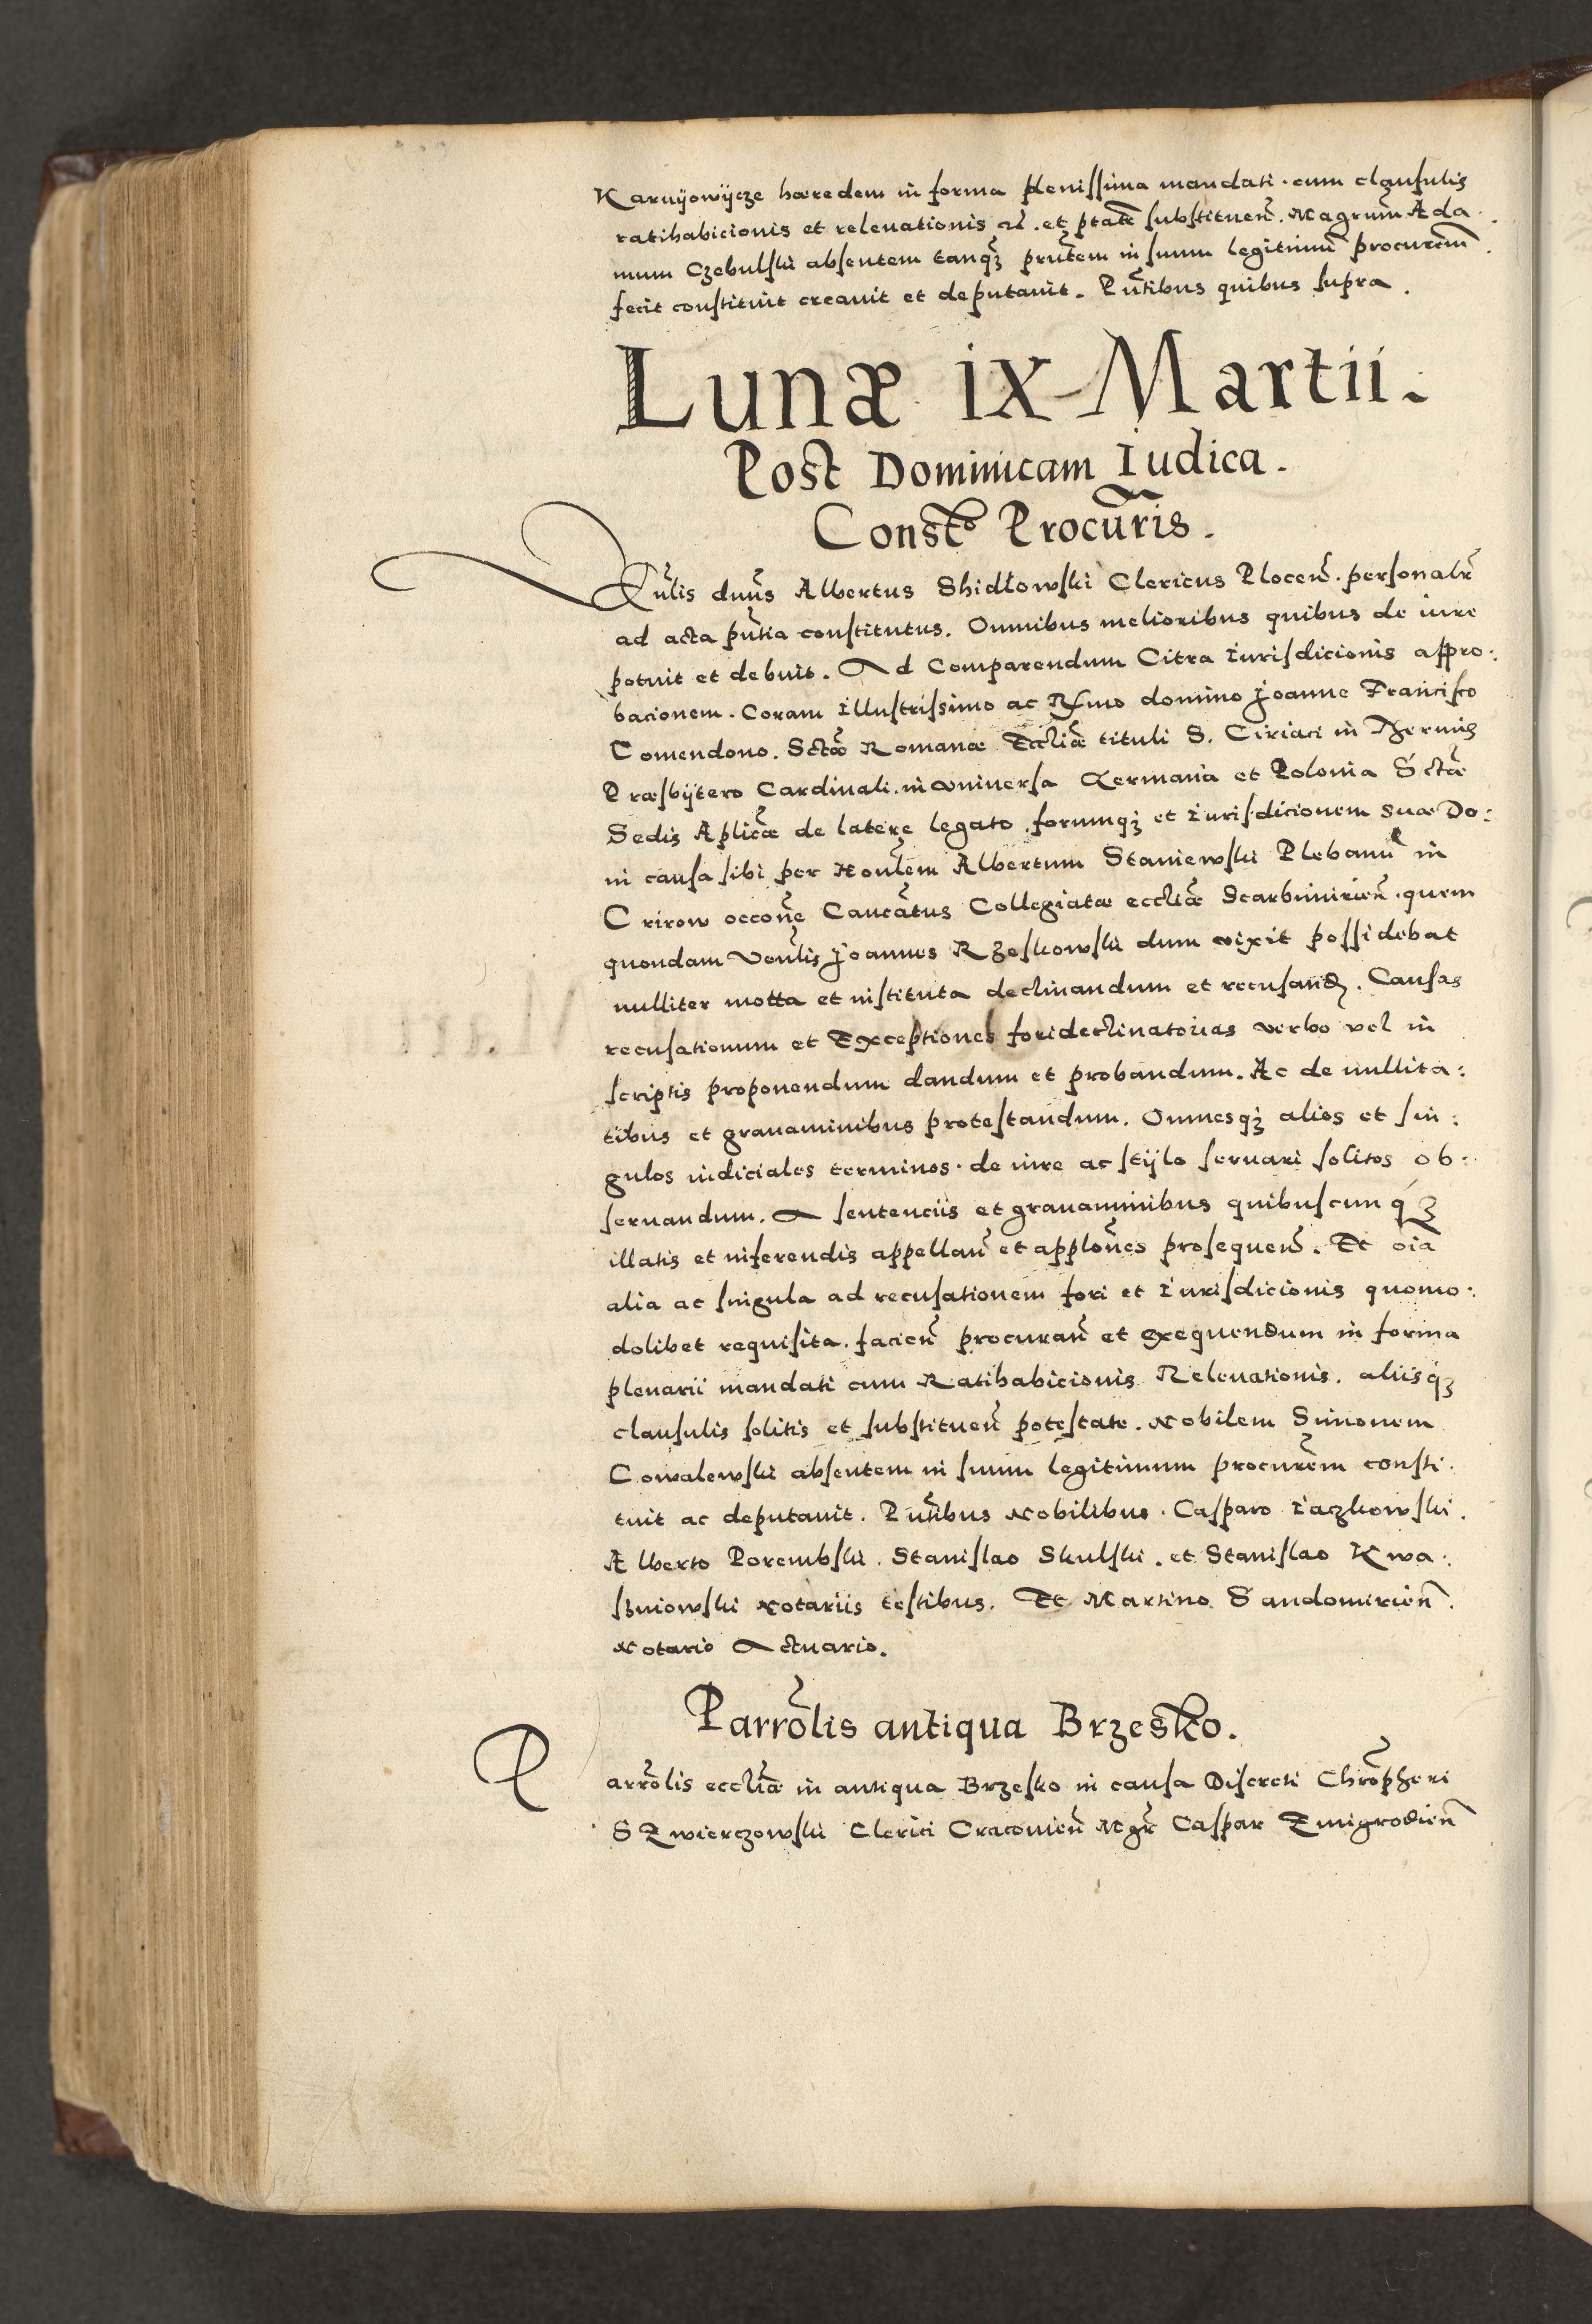 Karnijowijcze hæredem in forma plenissima mandati. cum clausulis
ratihabicionis et releuationis et. et ptate substituen. Magrum Ada
mum Czebulski absentem tanqz pñtem in suum legitimũ procurem
fecit constituit creauit et deputauit. Pñtibus quibus supra.
Lunæ ix Martii.
Post Dominicam Iudica.
Const͠o Procuris.
dnus Albertus Shidlowski Clericus Plocen̄. personalr̄
ad acta pñtia constitutus. Omnibus melioribus quibus de iure
potuit et debuit. Ad Comparendum Citra Iurisdicionis appro:
bacionem. Coram Illustrissimo ac Rſmo domino Joanne Francisco
Comendono. Sctæ Romanæ Eccliæ tituli S. Ciriaci in Thermis
Præsbijtero Cardinali. in vniuersa Germania et Polonia Sctæ
Sedis Aplicæ de latere legato. forumqz et Iurisdicionem suæ Do:
in causa sibi per Honlem Albertum Staniewski Plebanũ in
Crirow occone Canca̅tus Collegiatæ eccliæ Scarbimirien̄. quem
quondam Vonlis Joannes Rzeskowski dum vixit possidebat
nulliter motta et instituta declinandum et recusand. Causas
recusationum et Exceptiones forideclinatorias verbo vel in
scriptis proponendum dandum et probandum. Ac de nullita:
tibus et grauaminibus protestandum. Omnesqz alios et sin:
gulos iudiciales terminos. de iure ac stijlo seruari solitos ob:
seruandum. A sentenciis et grauaminibus quibuscunqz
illatis et inferendis appellan̄ et applones prosequen̄. Et oīa
alia ac singula ad recusationem fori et Iurisdicionis quomo:
dolibet requisita. facien̄ procuran̄ et exequendum in forma
plenarii mandati cum Ratihabicionis Releuationis. aliisqz
clausulis solitis et substituen̄ potestate. Nobilem Simonem
Cowalewski absentem in suum legitimum procurem consti:
tuit ac deputauit. Pñtibus Nobilibus. Casparo Iaczkowski.
Alberto Porembski. Stanislao Skulski. et Stanislao Kwa:
szniowski Notariis testibus. Et Martino Sandomirien̄.
Notario Actuario.
Parrolis antiqua Brzesko.
Parrolis eccliæ in antiqua Brzesko in causa Discreti Chropheri
SZwierczowski Clerici Cracouien̄ Mgr Caspar Zmigrodien̄